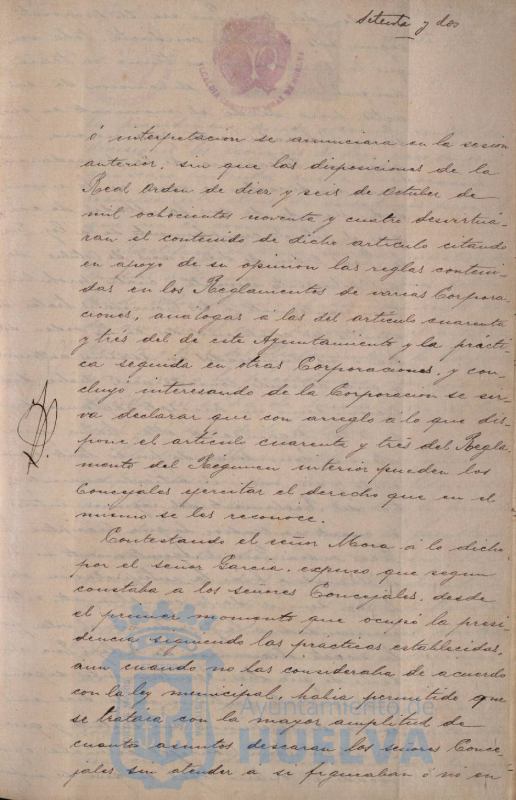 Setenta y dos
ó interpretacion se anunciara en la sesion
anterior, sin que las disposiciones de la
Real Orden de diez y seis de Octubre de
mil ochocientos noventa y cuatro desvirtua-
ran el contenido de dicho artículo citando
en apoyo de su opinion las reglas conteni-
das en los Reglamentos de varias Corpora-
ciones, analogas á las del artículo cuarenta
y tres del de este Ayuntamiento y la prácti-
ca seguida en otras Corporaciones, y con-
cluyó interesando de la Corporacion se sir-
va declarar que con arreglo á lo que dis-
pone el artículo cuarenta y tres del Regla-
mento del Régimen interior pueden los
Concejales ejercitar el derecho que en el
mismo se les reconoce.
Contestando el señor Mora á lo dicho
por el señor García, expuso que segun
constaba a los señores Concejales, desde
el primer momento que ocupó la presi-
dencia siguiendo las prácticas establecidas,
aun cuando no las consideraba de acuerdo
con la ley municipal, habia permitido que
se tratara con la mayor amplitud de
cuantos asuntos desearan los señores Conce-
jales sin atender a si figuraban ó no en
Ayuntamiento de
HUELVA